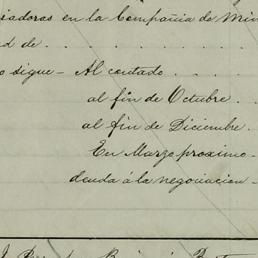 siadoras en la Compañia de Min
d de . . . . . . . . . .
o sigue - Al contado . . . .
al fin de Octubre . .
al fin de Diciembre .
En Marzo proximo -
deuda á la negociacion -